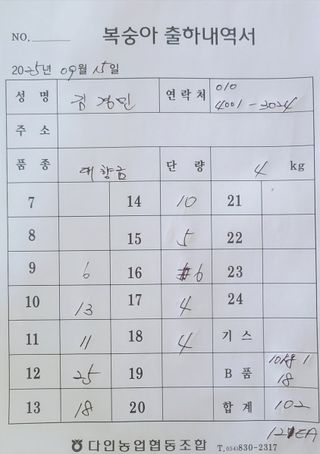 NO.
복숭아 출하내역서
2025년 09월 15일
성 명 김경민 연락처 010 4001-3024
주 소
품 종 대향금 단 량 4 kg
7 14 10 21
8 15 5 22
9 6 16 6 23
10 13 17 4 24
11 11 18 4 기 스
12 25 19 B 품 18
13 18 20 합 계 102
다인농업협동조합 T.(054)830-2317